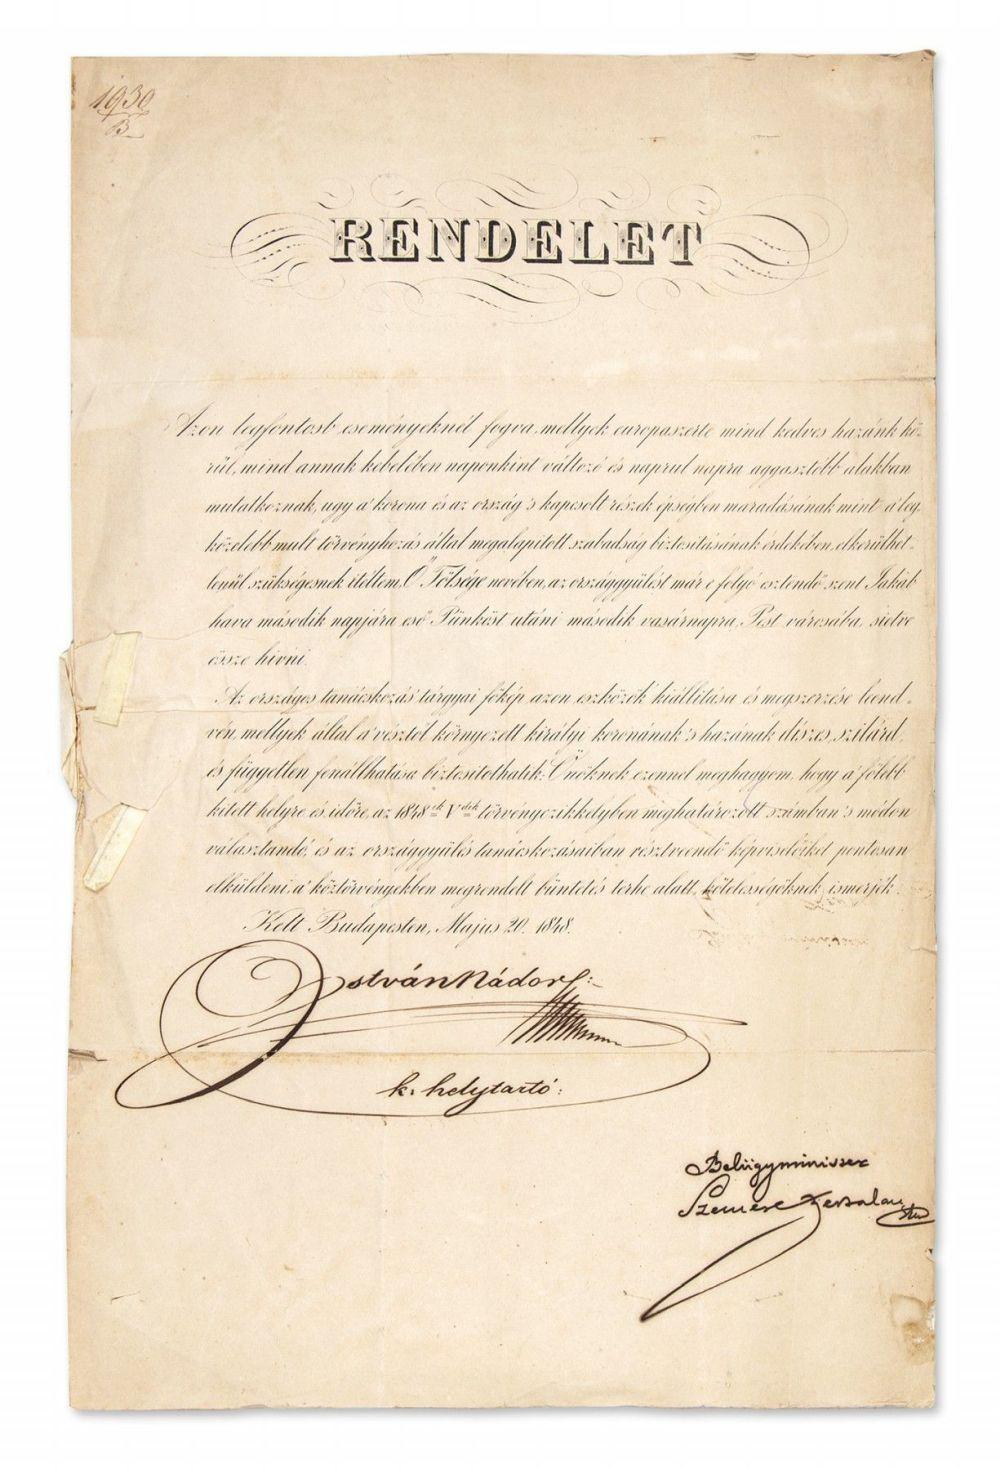 1930
B
RENDELET
Azon legfontosb eseményeknél fogva, mellyek europaszerte mind kedves hazánk kö-
rül, mind annak kebelében naponkint változó és naprul napra aggasztóbb alakban
mutatkoznak, ugy a' korona és az ország 's kapcsolt részek épségben maradásának mint a' leg
közelebb mult törvényhozás által megalapitott szabadság biztositásának érdekében, elkerülhet-
lenül szükségesnek itéltem, Ő Fölsége nevében, az országgyülést már e folyó esztendő szent Jakab
hava második napjára eső Pünköst utáni második vasárnapra, Pest városába, sietve
össze hivni.
Az országos tanácskozás tárgyai főkép azon eszközök kiállitása és megszerzése leend-
vén, mellyek által a' vésztől környezett királyi koronának 's hazának diszes, szilárd,
és független fenállhatása biztositathatik: Önöknek ezennel meghagyom, hogy a' fölebb
kitett helyre és időre, az 1848ik Vdik törvényczikkelyben meghatározott számban 's módon
választandó, és az országgyülés tanácskozásaiban résztveendő képviselőiket pontosan
elküldeni, a' köztörvényekben megrendelt büntetés terhe alatt, kötelességöknek ismerjék.
Kelt Budapesten, Majus 20. 1848.
István Nádor
k. helytartó:
Belügyminiszer
Szemere Bertalan